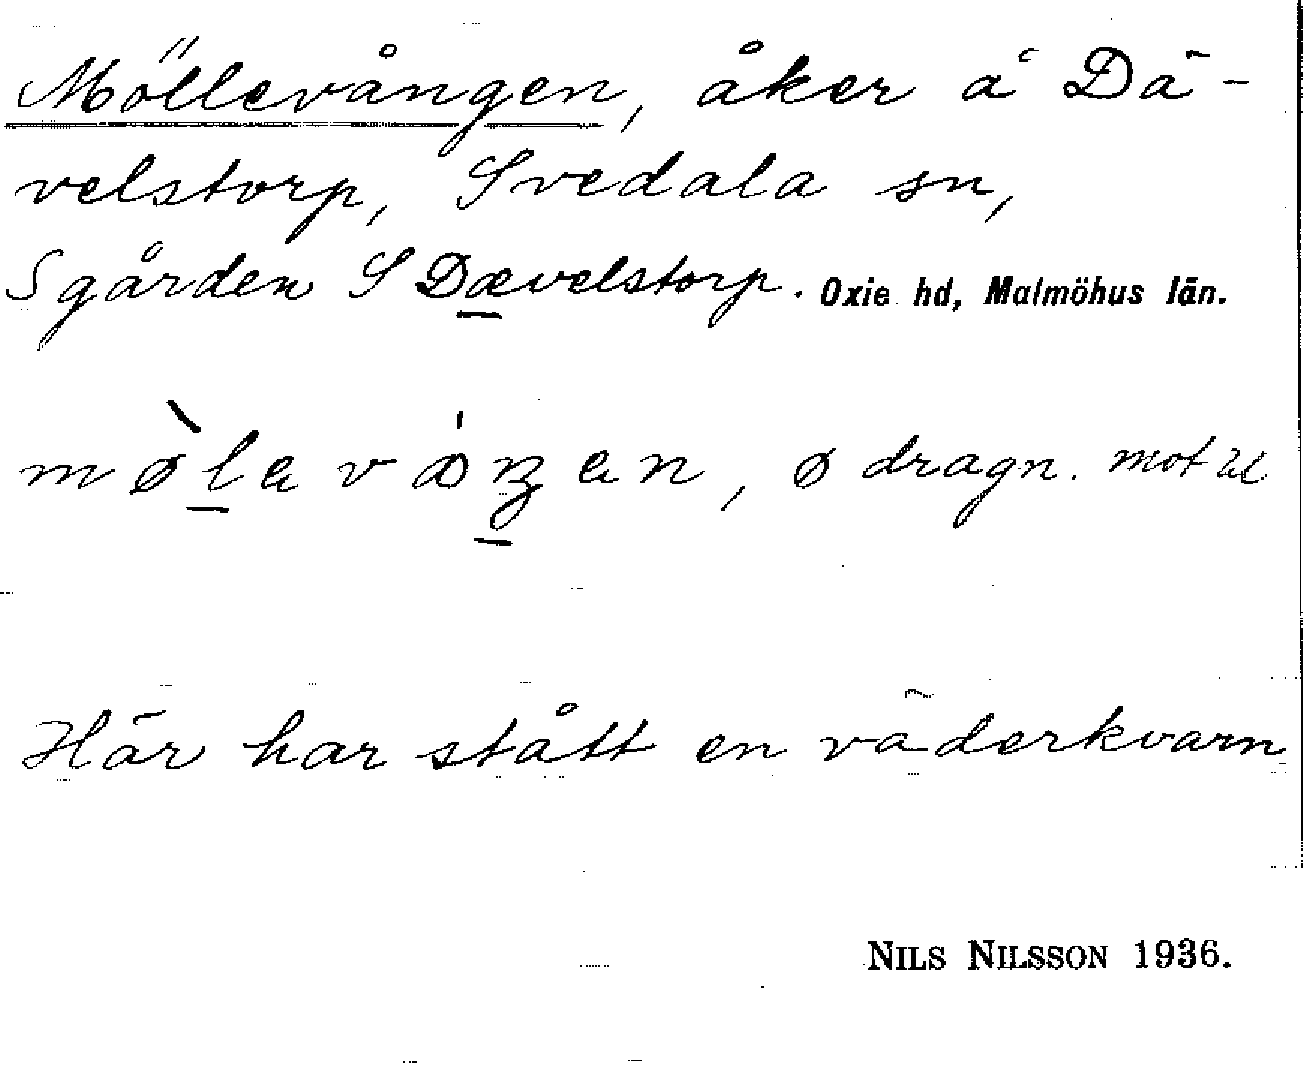 Möllevången, åker å Dä-
velstorp, Svedala sn,
S gården S Dævelstorp. Oxie hd, Malmöhus län.
mø̀laváŋan, ø dragn. mot u
Här har stått en väderkvarn
NILS NILSSON 1936.